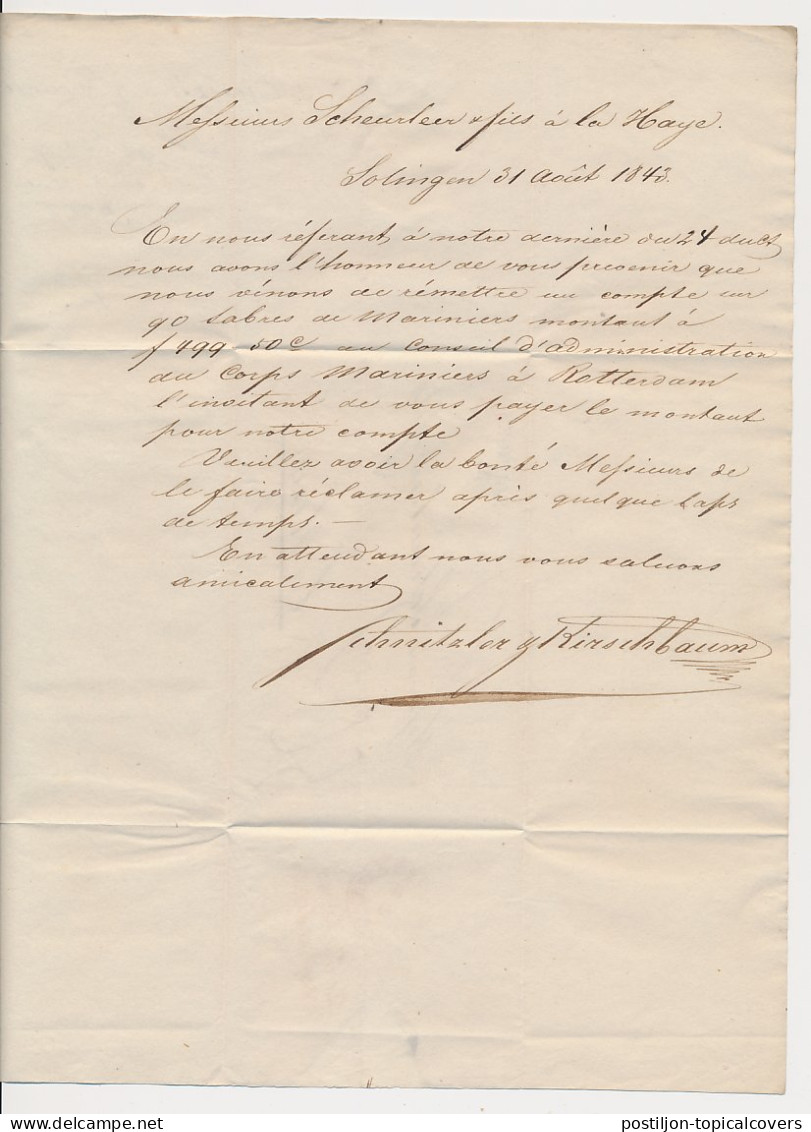 Messieurs Scheurleer & fils à la Haye.
Solingen 31 Août 1843.
En nous réferant à notre dernière du 24 du ct
nous avons l'honneur de vous prevenir que
nous vénons de rémettre un compte sur
90 Sabres de Mariniers montant à
f 499 50 c au Conseil d'administration
du Corps Mariniers à Rotterdam
l'invitant de vous payer le montant
pour notre compte
Veuillez avoir la bonté Messieurs de
le faire réclamer après quelque laps
de temps. —
En attendant nous vous saluons
amicalement
Schnitzler & Kirschbaum
postiljon-topicalcovers